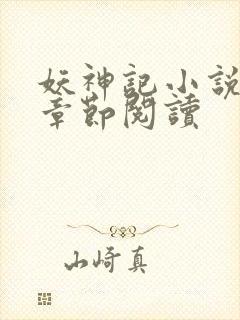 妖神記小說
章節閱讀
山崎真